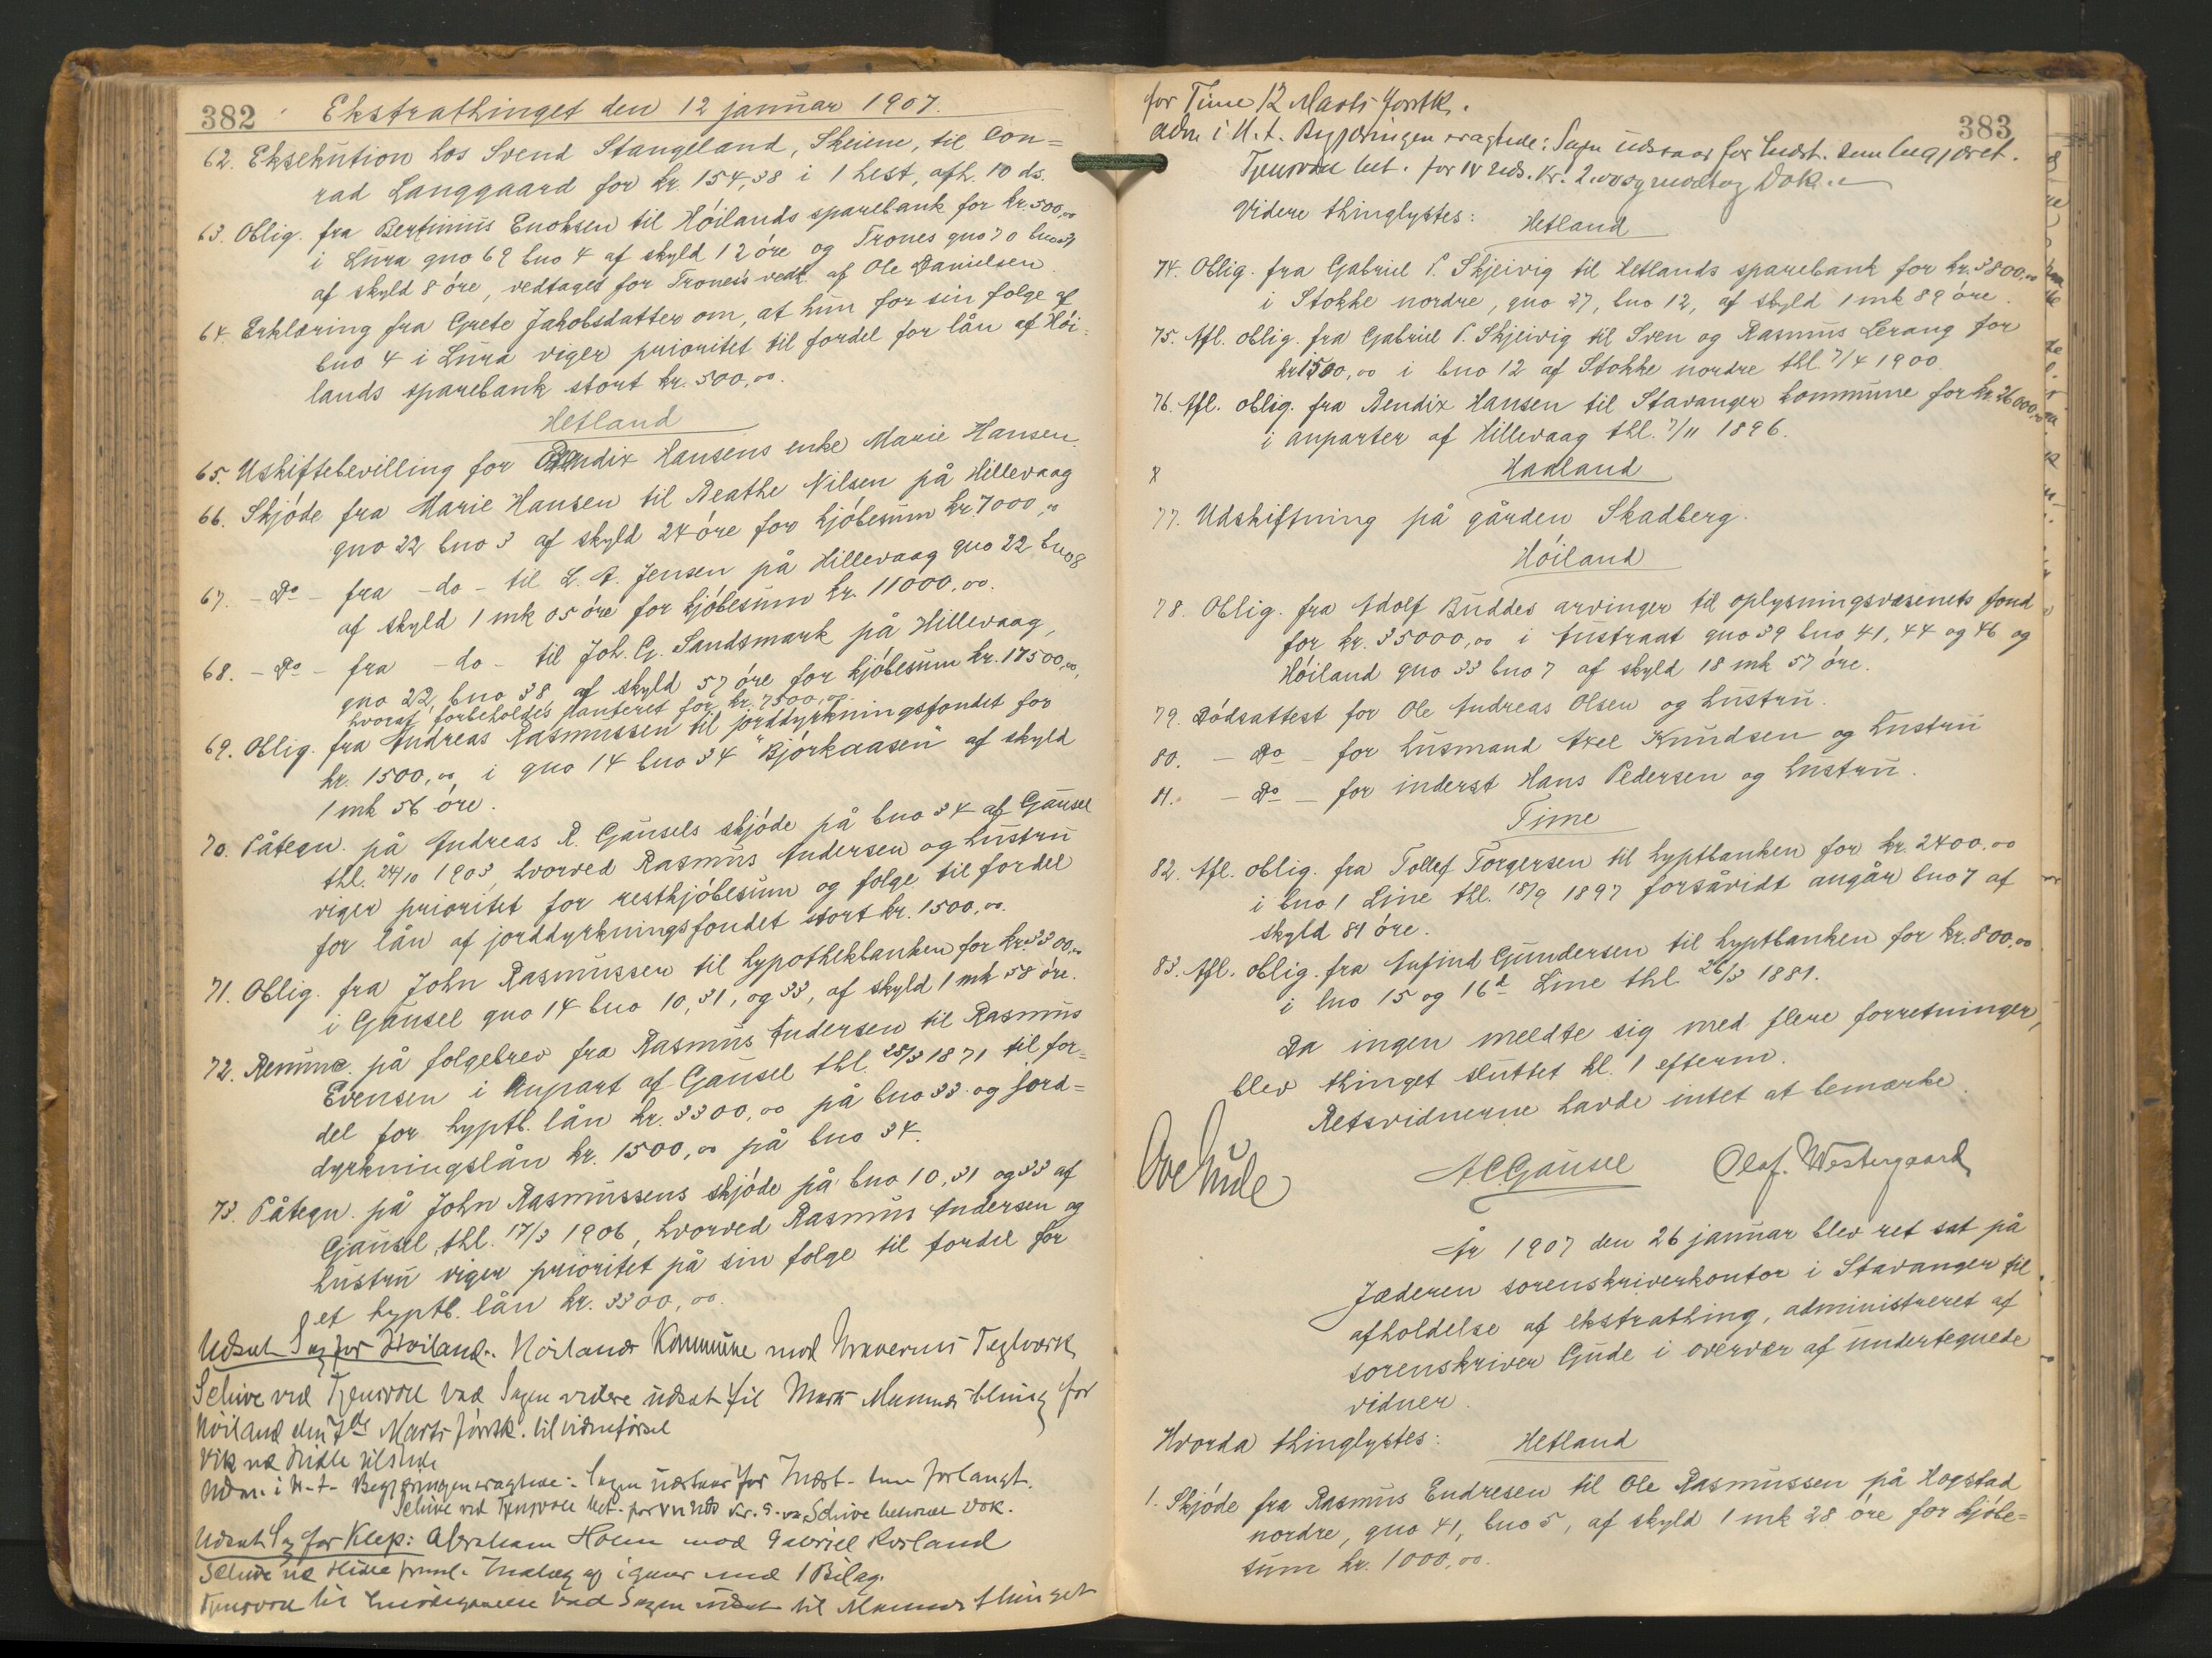 382
Ekstrathinget den 12 januar 1907.
62. Eksekution hos Svend Stangeland, Skeiene, til Con=
rad Langgaard for kr. 154,38 i 1 hest, afh. 10 ds.
63. Oblig. fra Bertinius Enoksen til Höilands sparebank for kr. 500,00
i Lura gno 69 bno 4 af skyld 12 öre og Trones gno 70 bno 3
af skyld 8 öre, vedtaget for Trones's vedk. af Ole Danielsen.
64. Erklæring fra Grete Jakobsdatter om, at hun for sin folge af
bno 4 i Lura viger prioritet til fordel for lån af Höi-
lands sparebank stort kr. 500,00.
Hetland
65. Uskiftebevilling for Bendix Hansens enke Marie Hansen.
66. Skjöde fra Marie Hansen til Beathe Nilsen på Hillevaag
gno 22 bno 3 af skyld 24 öre for kjöbesum kr. 7000,00
67. - Do - fra - do - til L. A. Jensen på Hillevaag gno 22 bno 8
af skyld 1 mk 05 öre for kjöbesum kr. 11000,00.
68. - Do - fra - do - til Joh. G. Sandsmark på Hillevaag,
gno 22, bno 38 af skyld 57 öre for kjöbesum kr. 17500,00,
hvoraf forbeholdes panteret for kr. 7500,00.
69. Oblig. fra Andreas Rasmussen til jorddyrkningsfondet for
kr. 1500,00 i gno 14 bno 34 "Bjórkaasen" af skyld
1 mk 56 öre.
70. Påtegn. på Andreas R. Gausels skjöde på bno 34 af Gausel
thl. 24/10 1903, hvorved Rasmus Andersen og hustru
viger prioritet for restkjöbesum og folge til fordel
for lån af jorddyrkningsfondet stort kr. 1500,00.
71. Oblig. fra John Rasmussen til hypothekbanken for kr. 3300,00
i Gausel gno 14 bno 10, 31, og 33, af skyld 1 mk 58 öre.
72. Renunc. på folgebrev fra Rasmus Andersen til Rasmus
Evensen i Anpart af Gausel thl. 28/3 1871 til for=
del for hyptb. lån kr. 3300,00 på bno 33 og jord=
dyrkningslån kr. 1500,00 på bno 34.
73. Påtegn. på John Rasmussens skjöde på bno 10, 31 og 33 af
Gausel, thl. 17/3 1906, hvorved Rasmus Andersen og
hustru viger prioritet på sin folge til fordel for
et hyptb. lån kr. 3300,00.
Udsat Sag for Höiland. Höilands Kommune mod Teglværk
Schive ved Tjensvoll bad Sagen videre udsat til for
Höiland den 7de Marts förstk. til vidneførsel
Adm. i H. t. Begjæringen eragtede: Sagen udstaar for
Schive ved Tjensvoll Schive Dok.
Udsat Sag for Klep: Abraham Holm mod Gabriel
Schive 1 Bilag.
Tjensvoll bad Sagen udsat til
383
for Time 12 Marts förstk.
Adm. i H. t. Begjæringen eragtede: Sagen udstaar for Indst. som begjæret.
Tjensvoll bet. for Kr. 2.00 og modtog Dok.
Videre thinglystes:
Hetland
74. Oblig. fra Gabriel P. Skjeivig til Hetlands sparebank for kr. 3800,00
i Stokke nordre, gno 37, bno 12, af skyld 1 mk 89 öre.
75. Afl. oblig. fra Gabriel P. Skjeivig til Sven og Rasmus Lerang for
kr. 1500,00 i bno 12 af Stokke nordre thl. 7/4 1900.
76. Afl. oblig. fra Bendix Hansen til Stavanger kommune for kr. 26000,00
i anparter af Hillevaag thl. 7/11 1896.
Haaland
77. Udskiftning på gården Skadberg.
Höiland
78. Oblig. fra Adolf Buddes arvinger til oplysningsvæsenets fond
for kr. 35000,00 i Austraat gno 39 bno 41, 44 og 46 og
Höiland gno 33 bno 7 af skyld 18 mk 57 öre.
79. Dödsattest for Ole Andreas Olsen og hustru.
80. - Do - for husmand Axel Knudsen og hustru
81. - Do - for inderst Hans Pedersen og hustru.
Time
82. Afl. oblig. fra Tollef Torgersen til hyptbanken for kr. 2400,00
i bno 1 Line thl. 18/9 1897 forsåvidt angår bno 7 af
skyld 81 öre.
83. Afl. oblig. fra Anfind Gundersen til hyptbanken for kr. 800,00
i lno 15 og 16 a Line thl. 26/3 1881.
Da ingen meldte sig med flere forretninger,
blev thinget sluttet kl. 1 efterm.
Retsvidnerne havde intet at bemærke.
Ove Gude
A C Gausel
Olaf. Westergaard
År 1907 den 26 januar blev ret sat på
Jæderen sorenskriverkontor i Stavanger til
afholdelse af ekstrathing, administreret af
sorenskriver Gude i overvær af undertegnede
vidner.
Hvorda thinglystes:
Hetland
1. Skjöde fra Rasmus Endresen til Ole Rasmussen på Hogstad
nordre, gno 41, bno 5, af skyld 1 mk 28 öre for kjöbe=
sum kr. 1000,00.